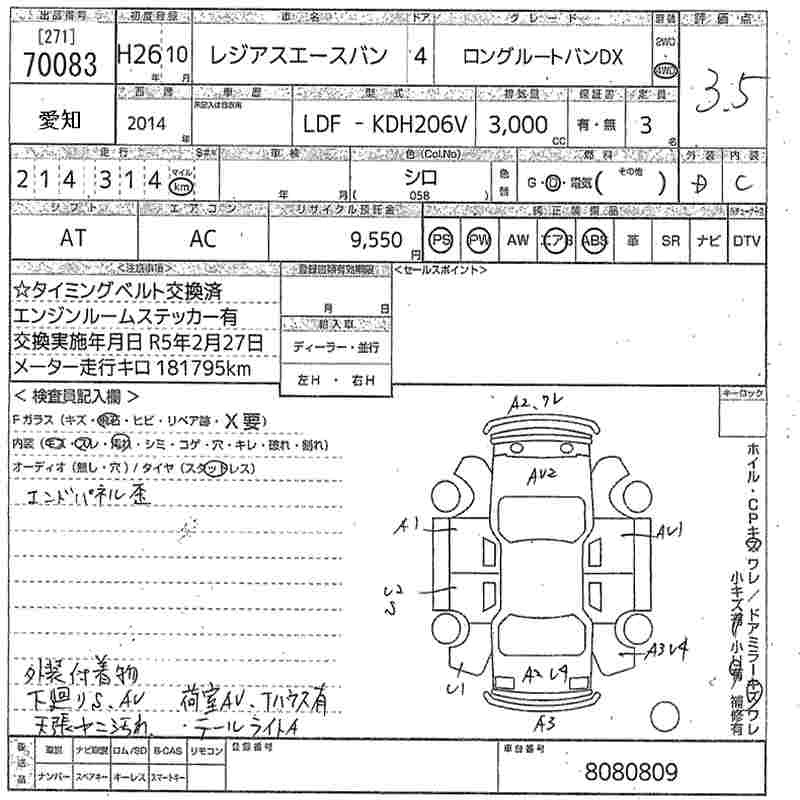 出品番号 初度登録 車名 ドア グレード 駆動 評価点
[271]
70083 H26年 10月 レジアスエースバン 4 ロングルートバンDX 2WD 4WD 3.5
西暦 車歴 型式 排気量 保証書 定員
愛知 2014年 LDF - KDH206V 3,000cc 有・無 3名
走行 車検 色(Col.No) 燃料 外装 内装
214,314 マイル km 年 月 シロ (058) 色替 G・D・電気 (その他) D C
シフト エアコン リサイクル預託金 純正装備品
AT AC 9,550円 PS PW AW エアB ABS 革 SR ナビ DTV
<注意事項> 登録書類有効期限 <セールスポイント>
☆タイミングベルト交換済
エンジンルームステッカー有 月 日
交換実施年月日 R5年2月27日 輸入車
メーター走行キロ 181795km ディーラー・並行
左H ・ 右H
< 検査員記入欄 > キーロック
Fガラス (キズ・飛石・ヒビ・リペア跡・X要)
内装 (キズ・スレ・汚れ・シミ・コゲ・穴・キレ・破れ・割れ)
オーディオ (無し・穴) / タイヤ (スタッドレス)
エンドパネル歪
A2、ワレ
AV2
A1 AV1
U2
S
A3 U4
U1 A2 U4
A3
ホイル・CPキズワレ/ドアミラーキズワレ
小キズ有 小凹有 補修有
外装付着物
下廻りS、AV 荷室AV、Tハウス有
天張ヤニ汚れ、・テールライトA
後送品 取説 ナビ取説 ロム/SD B-CAS リモコン 登録番号 車台番号
ナンバー スペアキー キーレス スマートキー 8080809